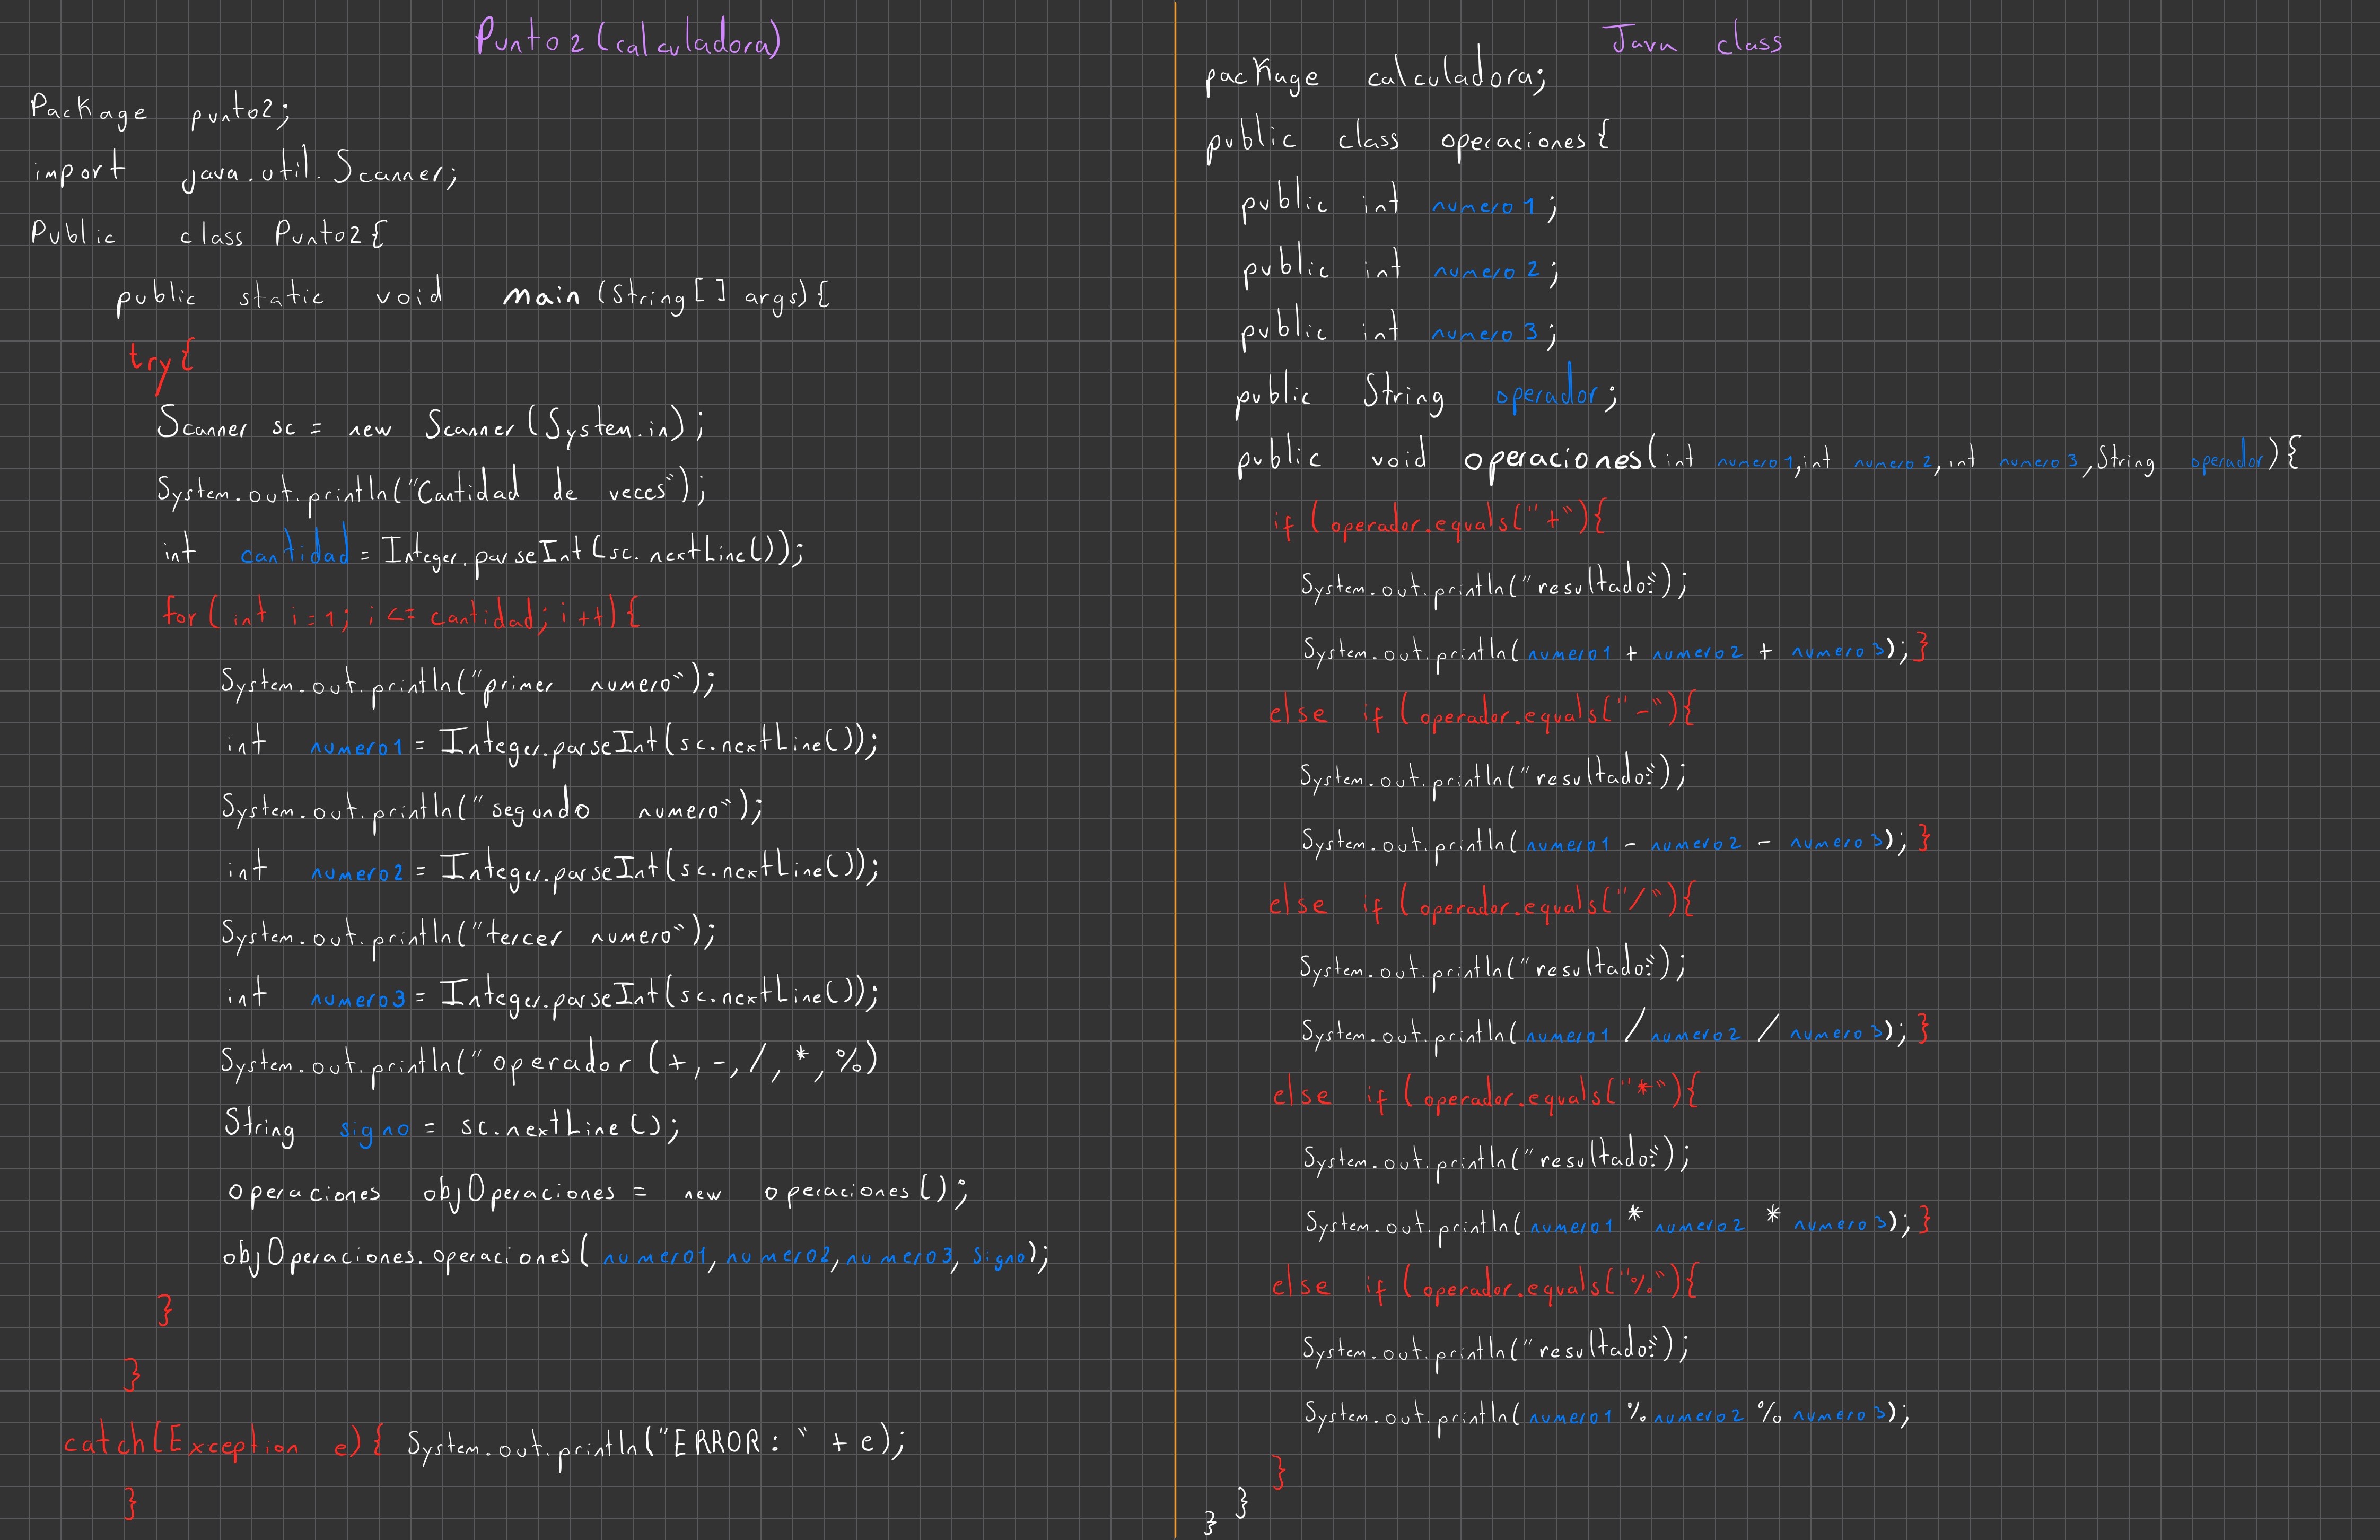 Punto2(calculadora)
Package punto2;
import java.util.Scanner;
Public class Punto2{
public static void main (String[] args){
try{
Scanner sc = new Scanner(System.in);
System.out.println("Cantidad de veces");
int cantidad = Integer.parseInt(sc.nextLine());
for(int i=1; i <= cantidad; i++){
System.out.println("primer numero");
int numero1 = Integer.parseInt(sc.nextLine());
System.out.println("segundo numero");
int numero2 = Integer.parseInt(sc.nextLine());
System.out.println("tercer numero");
int numero3 = Integer.parseInt(sc.nextLine());
System.out.println("operador (+,-,/,*,%)
String signo = sc.nextLine();
operaciones objOperaciones = new operaciones();
objOperaciones.operaciones(numero1,numero2,numero3,signo);
}
}
catch(Exception e){ System.out.println("ERROR: " + e);
}
Java class
package calculadora;
public class operaciones{
public int numero1;
public int numero2;
public int numero3;
public String operador;
public void operaciones(int numero1,int numero2,int numero3,String operador){
if (operador.equals("+"){
System.out.println("resultado:");
System.out.println(numero1 + numero2 + numero3);}
else if (operador.equals("-"){
System.out.println("resultado:");
System.out.println(numero1 - numero2 - numero3);}
else if (operador.equals("/"){
System.out.println("resultado:");
System.out.println(numero1 / numero2 / numero3);}
else if (operador.equals("*"){
System.out.println("resultado:");
System.out.println(numero1 * numero2 * numero3);}
else if (operador.equals("%"){
System.out.println("resultado:");
System.out.println(numero1 % numero2 % numero3);
}
}
}